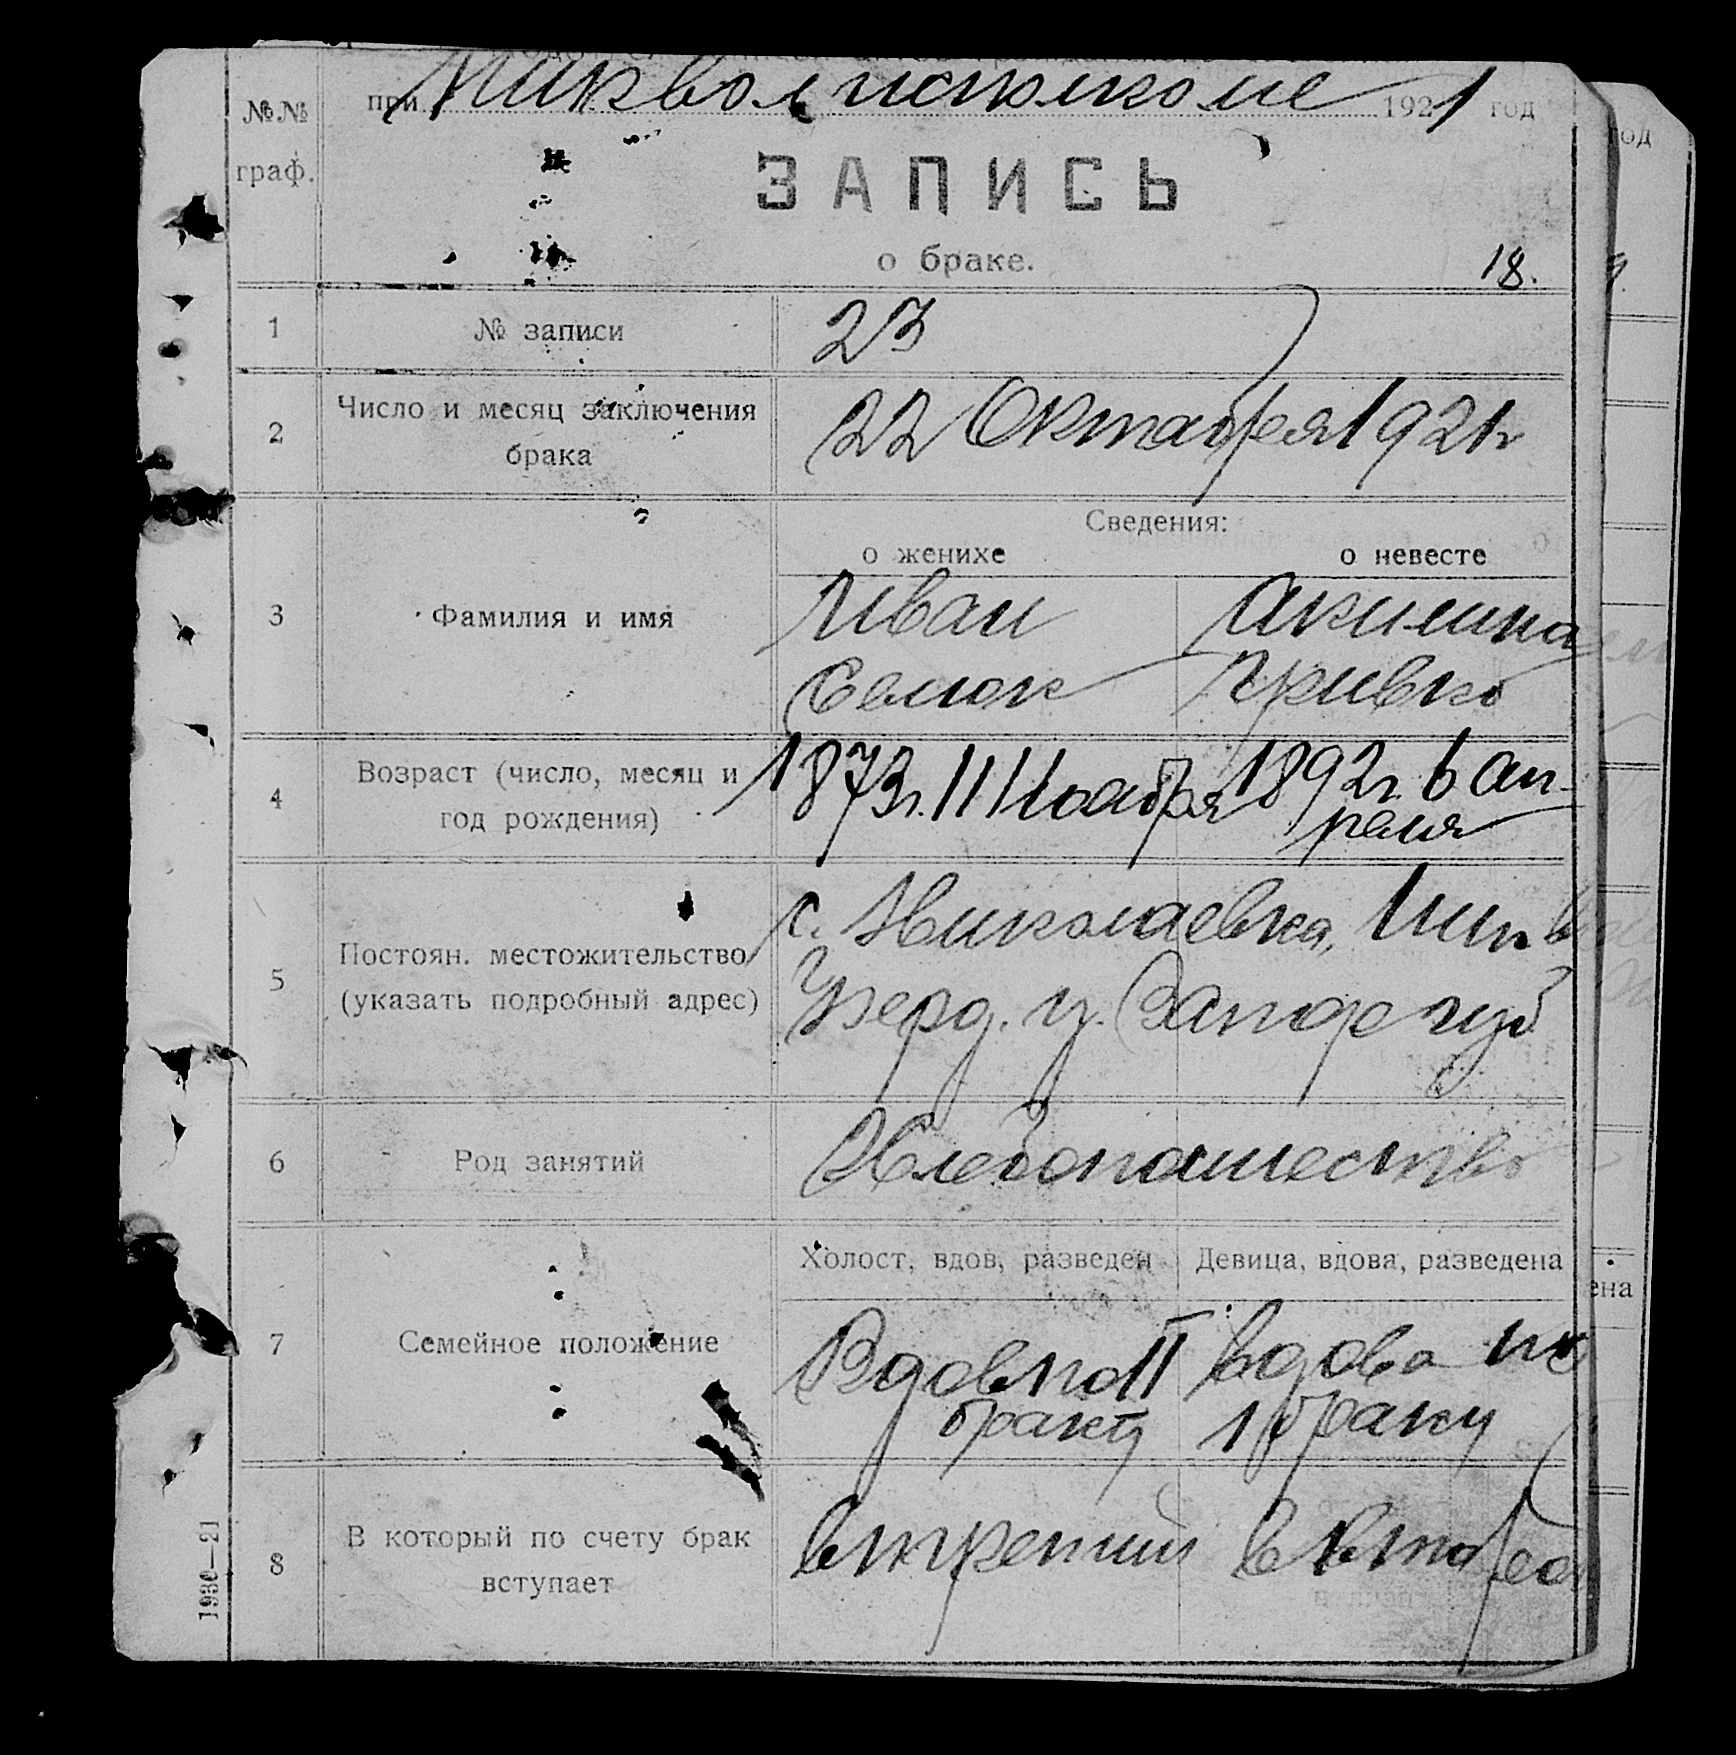 №№ граф.
при 1921 год
ЗАПИСЬ
о браке.
18.
1 № записи 23
2 Число и месяц заключения брака 22 Октября 1921 г
Сведения:
о женихе о невесте
3 Фамилия и имя
Иван Акилина
Семок Кривко
4 Возраст (число, месяц и год рождения)
1873 г. 11 Ноября 1892 г. 6 Ап-
реля
5 Постоян. местожительство (указать подробный адрес)
с. Николаевка,
Берд. у. Запор губ
6 Род занятий Хлебопашество
Холост, вдов, разведен Девица, вдова, разведена
7 Семейное положение
Вдов по II вдова по
браку 1 браку
8 В который по счету брак вступает
в третий в второй
1930—21
год
ена